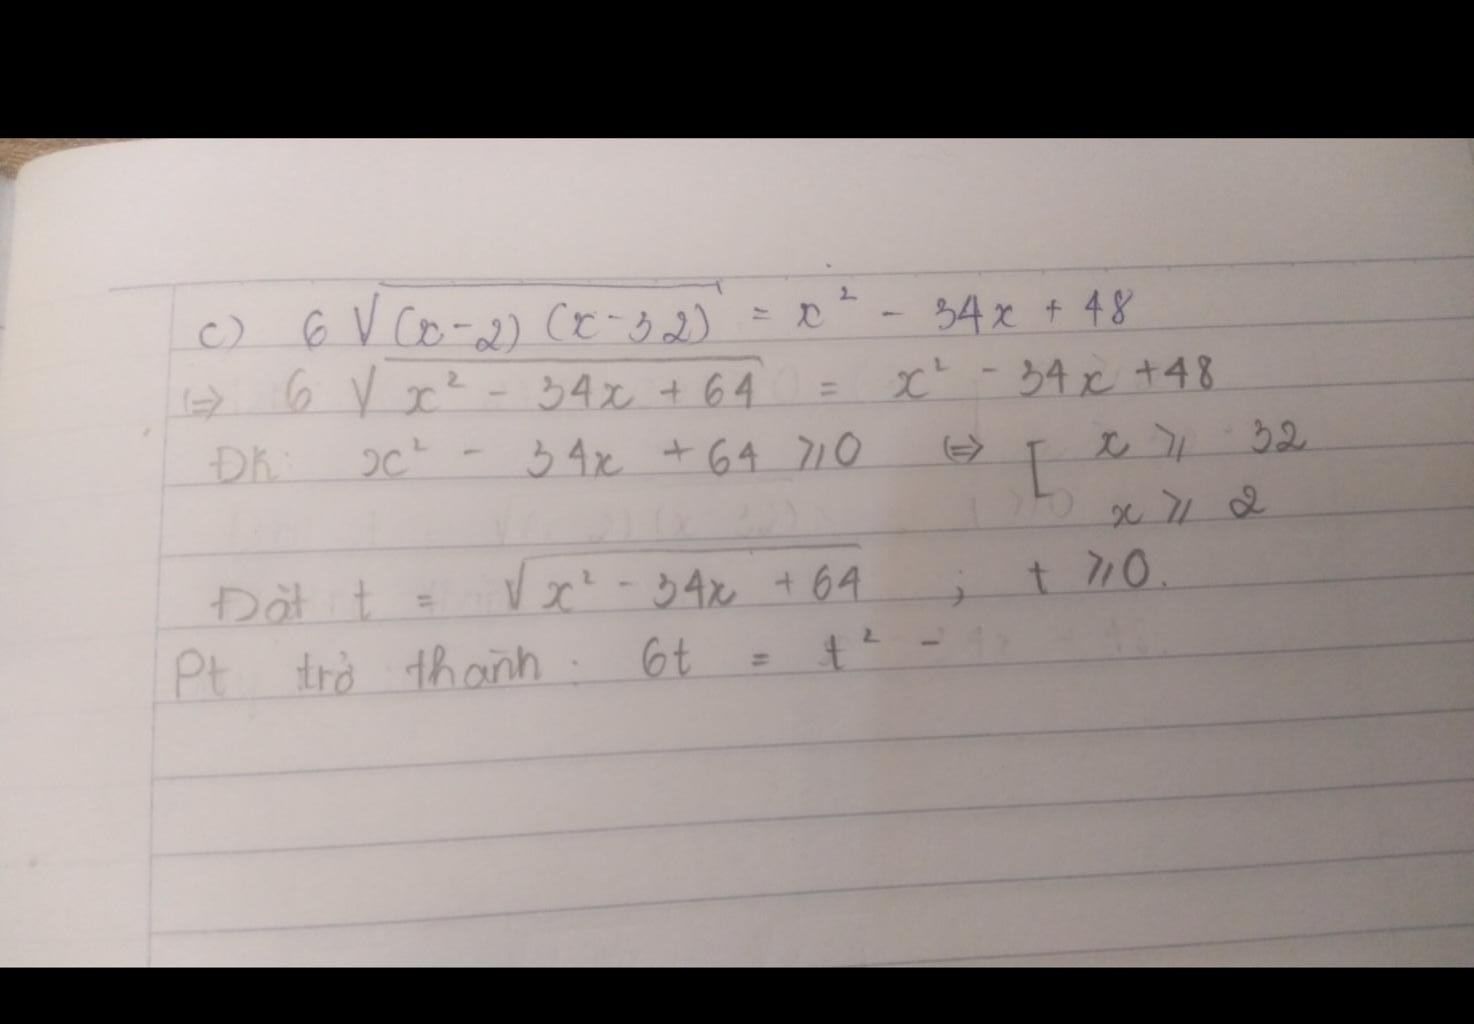 c) 6 √(x-2)(x-32) = x² - 34x + 48
⇔ 6 √x² - 34x + 64 = x² - 34x + 48
ĐK: x² - 34x + 64 ⩾ 0 ⇔ [ x ⩾ 32
x ⩾ 2
Đặt t = √x² - 34x + 64 ; t ⩾ 0.
Pt trở thành : 6t = t² -